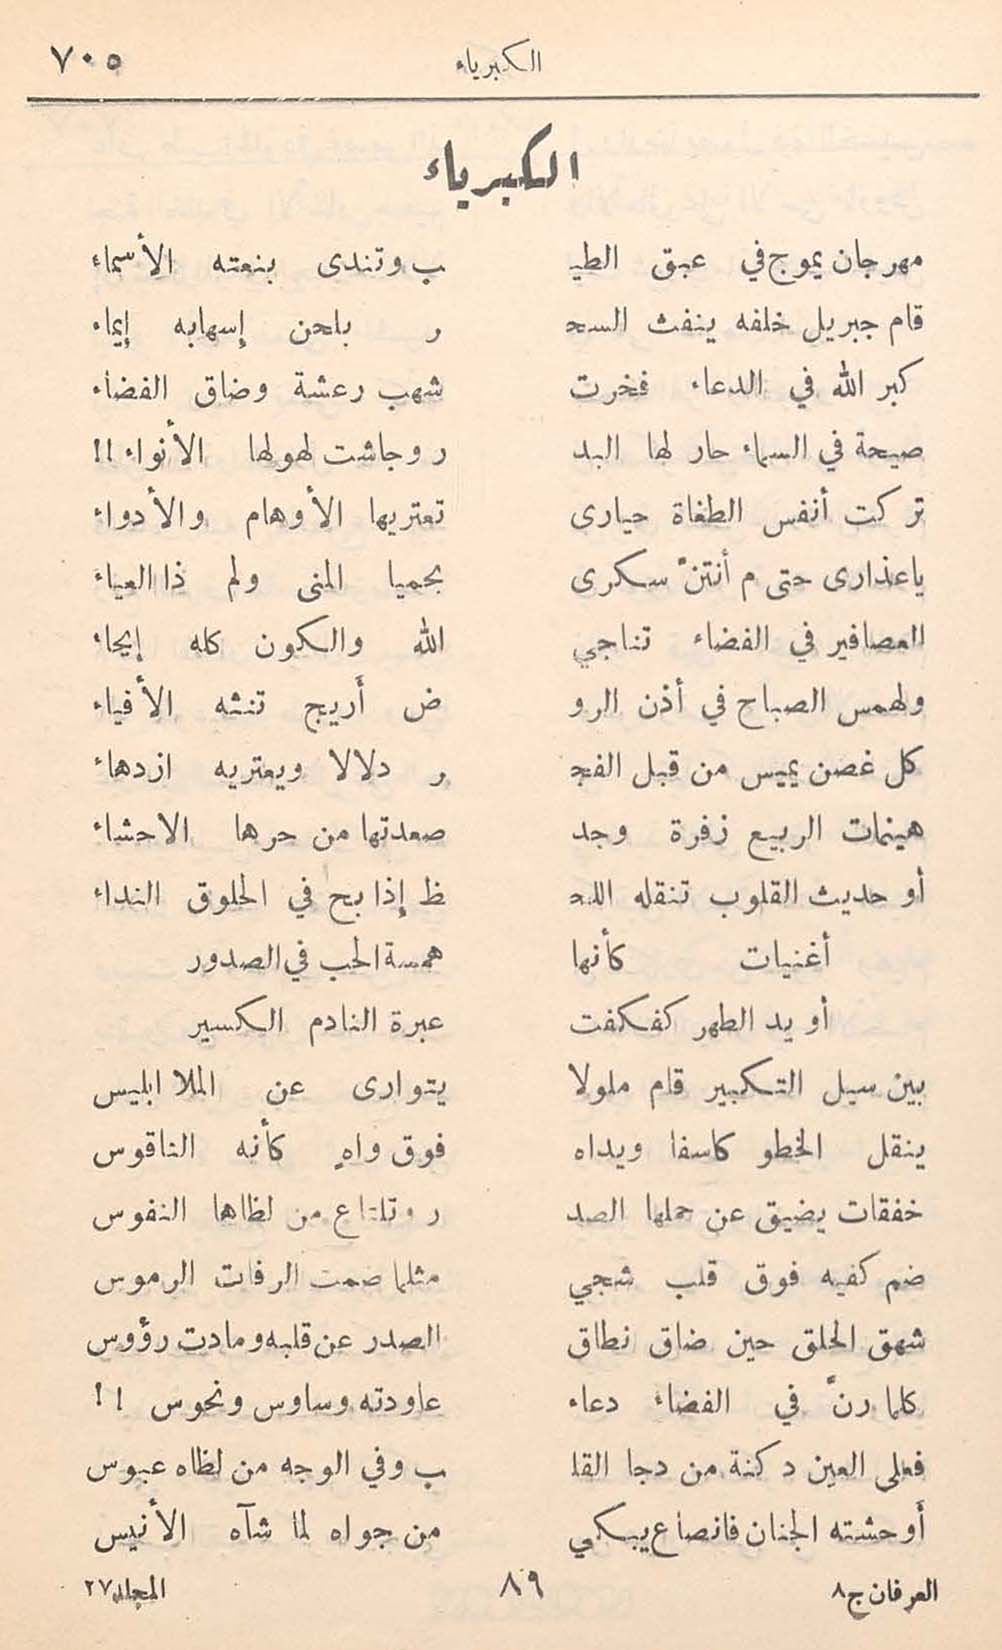 الكبرياء ٧٠٥
الكبرياء
مهرجان يموج في عبق الطيـ ـب وتندى بنعته الأسماء
قام جبريل خلفه ينفث السحـ ـر بلحن إسهابه إيماء
كبر الله في الدعاء فخرت شهب رعشة وضاق الفضاء
صيحة في السماء حار لها البد ر وجاشت لهولها الأنواء !!
تركت أنفس الطغاة حيارى تعتريها الأوهام والأدواء
ياعذارى حتى م أنتنّ سكرى بحميا المنى ولم ذا العياء
العصافير في الفضاء تناجي الله والكون كله إيحاء
ولهمس الصباح في أذن الرو ض أريج تنثه الأفياء
كل غصن يميس من قبل الفجـ ـر دلالا ويعتريه ازدهاء
هينمات الربيع زفرة وجد صعدتها من حرها الاحشاء
أو حديث القلوب تنقله اللحـ ـظ إذا بح في الحلوق النداء
أغنيات كأنها همسة الحب في الصدور
أو يد الطهر كفكفت عبرة النادم الكسير
بين سيل التكبير قام ملولا يتوارى عن الملا ابليس
ينقل الخطو كاسفا ويداه فوق واهٍ كأنه الناقوس
خفقات يضيق عن حملها الصد ر وتلتاع من لظاها النفوس
ضم كفيه فوق قلب شجي مثلما صمت الرفات الرموس
شهق الحلق حين ضاق نطاق الصدر عن قلبه ومادت رؤوس
كلما رنّ في الفضاء دعاء عاودته وساوس ونحوس !!
فعلى العين دكنة من دجا القلـ ـب وفي الوجه من لظاه عبوس
أوحشته الجنان فانصاع يبكي من جواه لما شآه الأنيس
العرفان ج٨ ٨٩ المجلد ٢٧